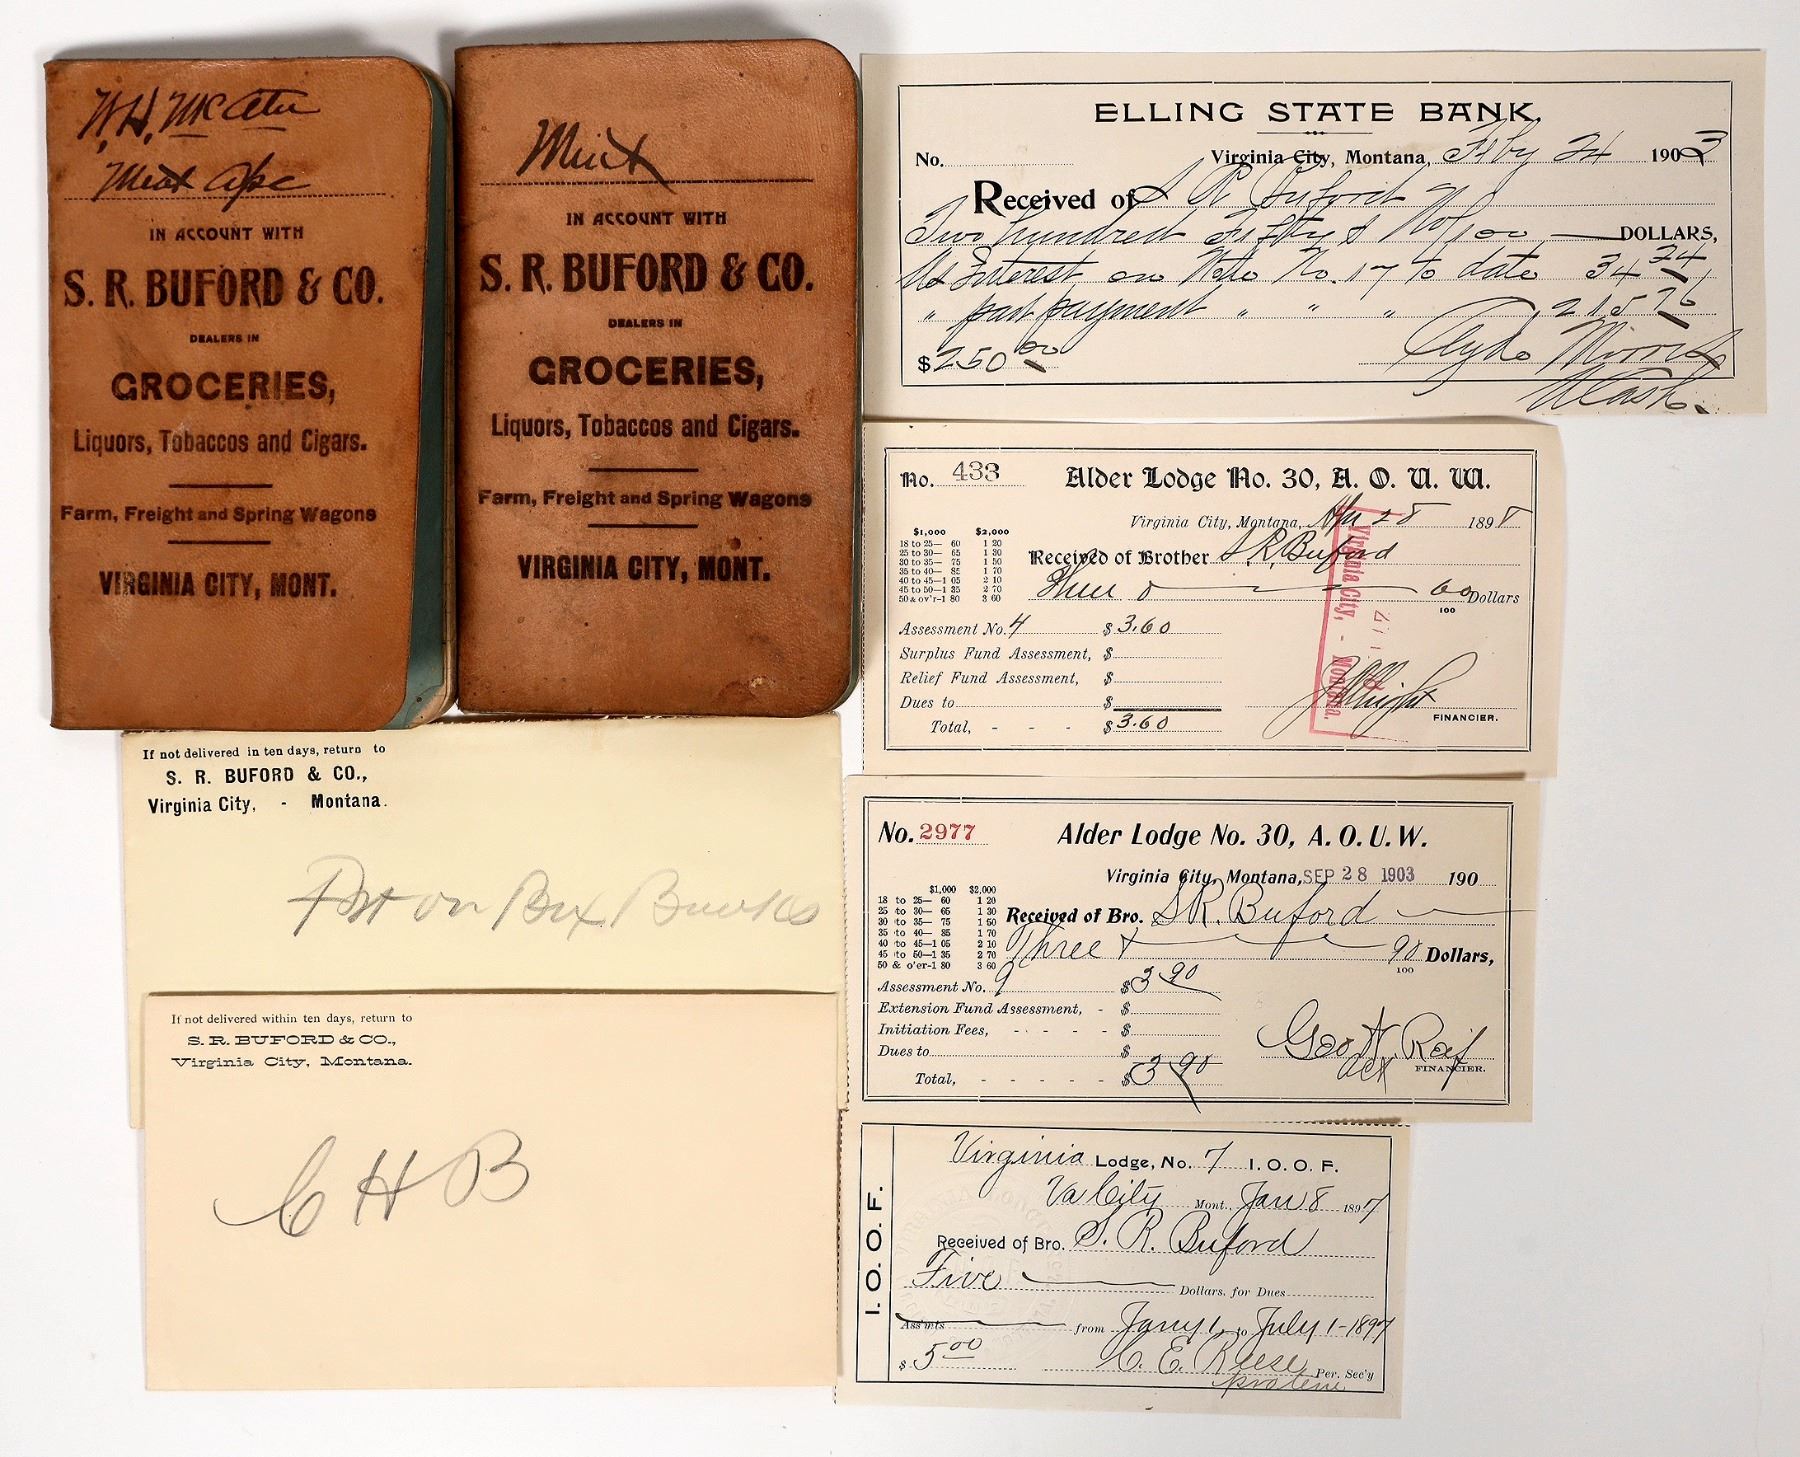 W.H. McAtee
Meat a/c
IN ACCOUNT WITH
S. R. BUFORD & CO.
DEALERS IN
GROCERIES,
Liquors, Tobaccos and Cigars.
Farm, Freight and Spring Wagons
VIRGINIA CITY, MONT.
IN ACCOUNT WITH
S. R. BUFORD & CO.
DEALERS IN
GROCERIES,
Liquors, Tobaccos and Cigars.
Farm, Freight and Spring Wagons
VIRGINIA CITY, MONT.
If not delivered in ten days, return to
S. R. BUFORD & CO.,
Virginia City, - Montana.
If not delivered within ten days, return to
S. R. BUFORD & CO.,
Virginia City, Montana.
C H B
ELLING STATE BANK,
No. Virginia City, Montana, Feby 24 1903
Received of S R Buford
Two hundred Fifty & No/100 DOLLARS,
As Interest on Note No. 17 to date 34 24
" part payment " " " 215 76
$250 00
Cash.
No. 433 Alder Lodge No. 30, A. O. U. W.
Virginia City, Montana, Apr 28 1898
$1,000 $2,000
18 to 25— 60 1 20
25 to 30— 65 1 30
30 to 35— 75 1 50
35 to 40— 85 1 70
40 to 45—1 05 2 10
45 to 50—1 35 2 70
50 & ov'r-1 80 3 60
Received of Brother S. R. Buford
Three & 60/100 Dollars
Assessment No. 4 $3.60
Surplus Fund Assessment, $
Relief Fund Assessment, $
Dues to $
Total, - - - $3.60
FINANCIER.
Virginia City, - Montana.
No. 2977 Alder Lodge No. 30, A. O. U. W.
Virginia City, Montana, SEP 28 1903 190
$1,000 $2,000
18 to 25— 60 1 20
25 to 30— 65 1 30
30 to 35— 75 1 50
35 to 40— 85 1 70
40 to 45—1 05 2 10
45 to 50—1 35 2 70
50 & o'er-1 80 3 60
Received of Bro. S R. Buford
Three & 90/100 Dollars,
Assessment No. 9 $3 90
Extension Fund Assessment, - $
Initiation Fees, - - - - $
Dues to $
Total, - - - - - $3 90
FINANCIER.
I. O. O. F.
Virginia Lodge, No. 7 I. O. O. F.
Va City Mont., Jan 8 1897
Received of Bro. S. R. Buford
Five Dollars, for Dues
Ass'mts from Jany 1, to July 1-1897
$ 5 00 C. E. Reese Per. Sec'y
protem